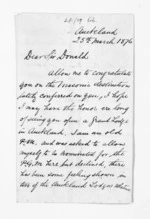 Auckland
25th March 1876
Dear Sir Donald
Allow me to congratulate
you on the Masonic distinction
lately conferred on you. I hope
I may have the honor ere long
of seeing you open a Grand Lodge
in Auckland. I am an old
P.M. and was asked to allow
myself to be nominated for the
P.G.M. here but declined, there
has been some feeling shown in
two of the Auckland Lodges